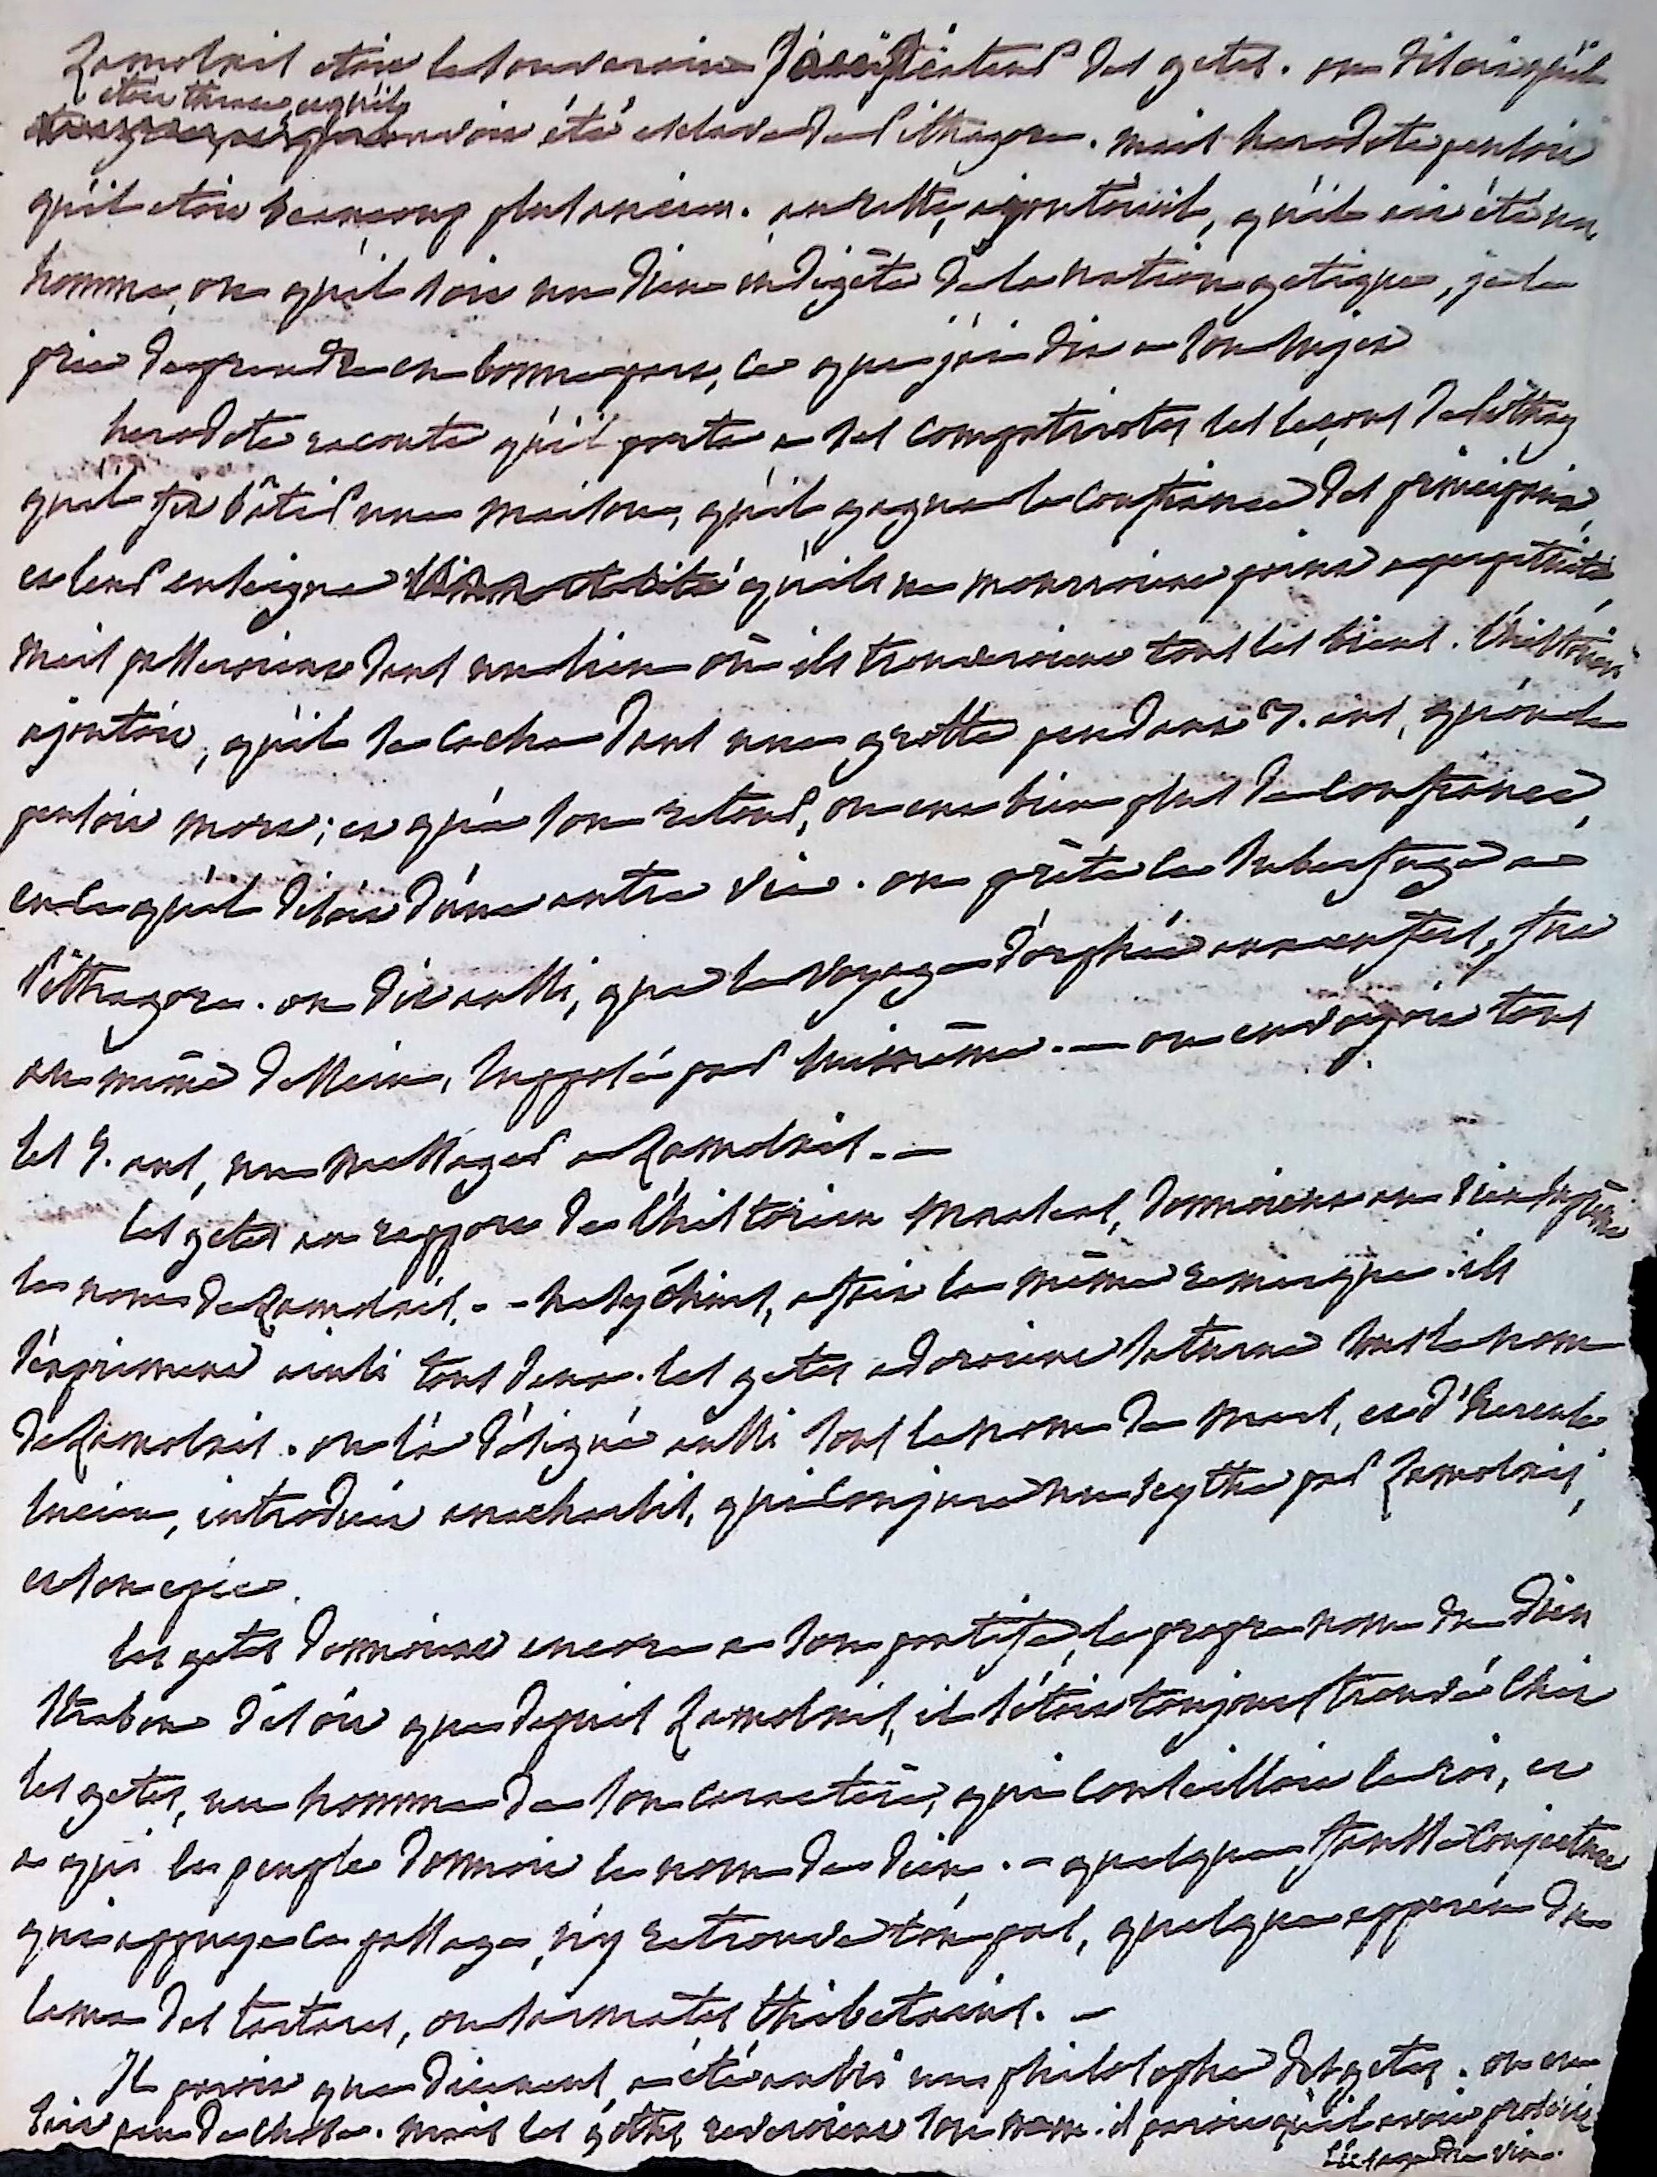 Zamolxis etoit le souverain des getes. on disoit qu'il
etoit thrace, et qu'il avoit été esclave de Pithagore. mais herodote pensoit
qu'il etoit beaucoup plus ancien. au reste, ajoutoit il, qu'il ait été un
homme, ou qu'il soit un dieu indigète de la nation getique, je le
prie de prendre en bonne part, ce que j'ai dit a son sujet
herodote raconte qu'il porta a ses compatriotes les leçons de Pithag
qu'il fit bâtir une maison, qu'il gagna la confiance des principaux,
et leur enseigna qu'ils ne mourroient point a perpétuité,
mais passeroient dans un lieu où ils trouveroient tous les biens. l'historien
ajoutoit, qu'il se cacha dans une grotte pendant 7. ans, qu'on le
pensoit mort; et qu'a son retour, on eut bien plus de confiance,
en ce qu'il disoit d'une autre vie. on prête ce subterfuge a
Pithagore. on dit aussi, que le voyage d'orphée aux enfers, fut
au même dessein, supposé par lui même. — on envoyoit tous
les 5. ans, un messager a Zamolxis. —
les getes au rapport de l'historien mnaseas, donnoient au dieu suprême
le nom de Zamolxis. - hesychius, a fait la même remarque. ils
s'expriment ainsi tous deux. les getes adoroient saturne sous le nom
de Zamolxis. on l'a désigné aussi sous le nom de mars, et d'hercule
lucien, introduit anacharsis, qui conjure un scythe par Zamolxis,
et son epée.
les getes donnoient encore a son pontife, le propre nom du dieu
Strabon disoit que depuis Zamolxis, il s'étoit toujours trouvé chez
les getes, un homme de son caractère, qui conseilloit le roi, et
a qui le peuple donnoit le nom de dieu. - quelque fausse conjecture
qui appuye ce passage, n'y retrouve t'on pas, quelque apperçu du
lama des tartares, ou sarmates thibetains. —
Il paroit que diceneus a été aussi un philosophe des getes. on en
sait peu de chose. mais les getes reveroient son nom. il paroit qu'il avoit prédit